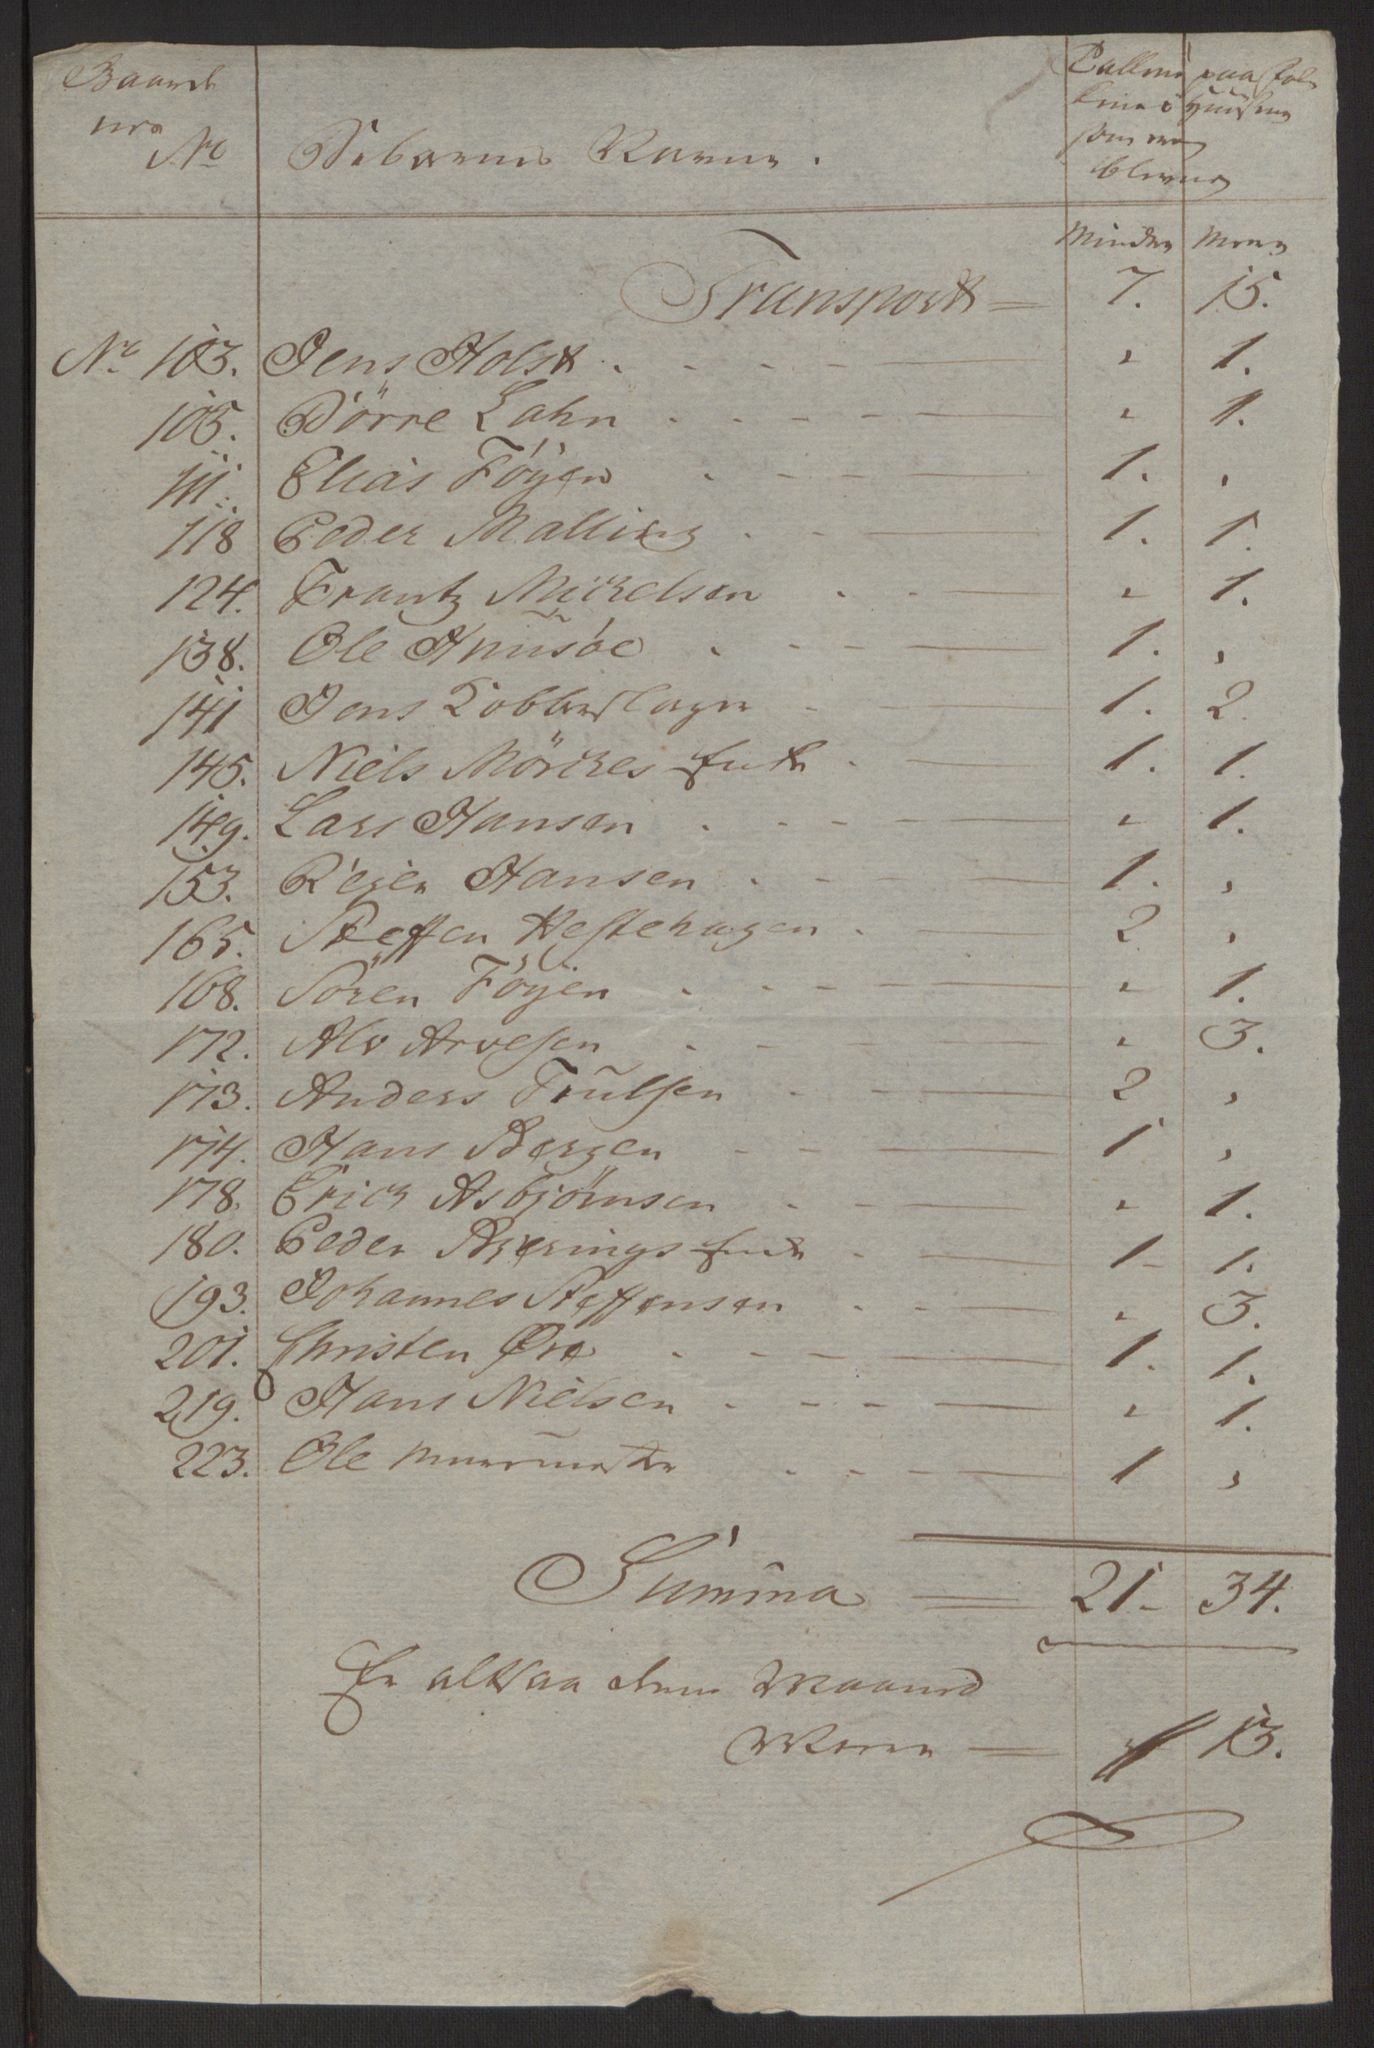 Gaard
No
Beboernes Navne.
Tallene paa Fol-
kene i Huusene
som ere
blevne
Mindre Meere
Transport = 7. 15.
No 103. Jens Holst . . . . — " 1.
105. Dörre Lahn . . . . — " 1.
111. Elias Föyen . . . — 1. "
118 Peder Malling . . . — 1. 1.
124. Frantz Michelsen . . — " 1.
138. Ole Knusöe . . . — 1. "
141 Jens Kobberslager . . — 1. 2.
145. Niels Mörches Enke . — 1. 1.
149. Lars Hansen . . . . — " 1.
153. Reier Hansen . . . — 1. "
165. Steffen Hestehagen . — 2 "
168. Sören Föyen . . . . — " 1.
172. Alv Arvesen . . . — " 3.
173. Anders Trulsen . . — 2 "
174. Hans Bergen . . . — 1 "
178. Erich Asbjörnsen . . — " 1.
180. Peder Enke . — 1 - 1.
193. Johannes Steffensen . . — " 3.
201. Christen Öre . . . — 1. 1.
219. Hans Nielsen . . . . — " 1.
223. Ole Muurmester . . . — 1 "
Summa = 21 - 34.
Er altsaa denne Maaned
Meere = " 13.